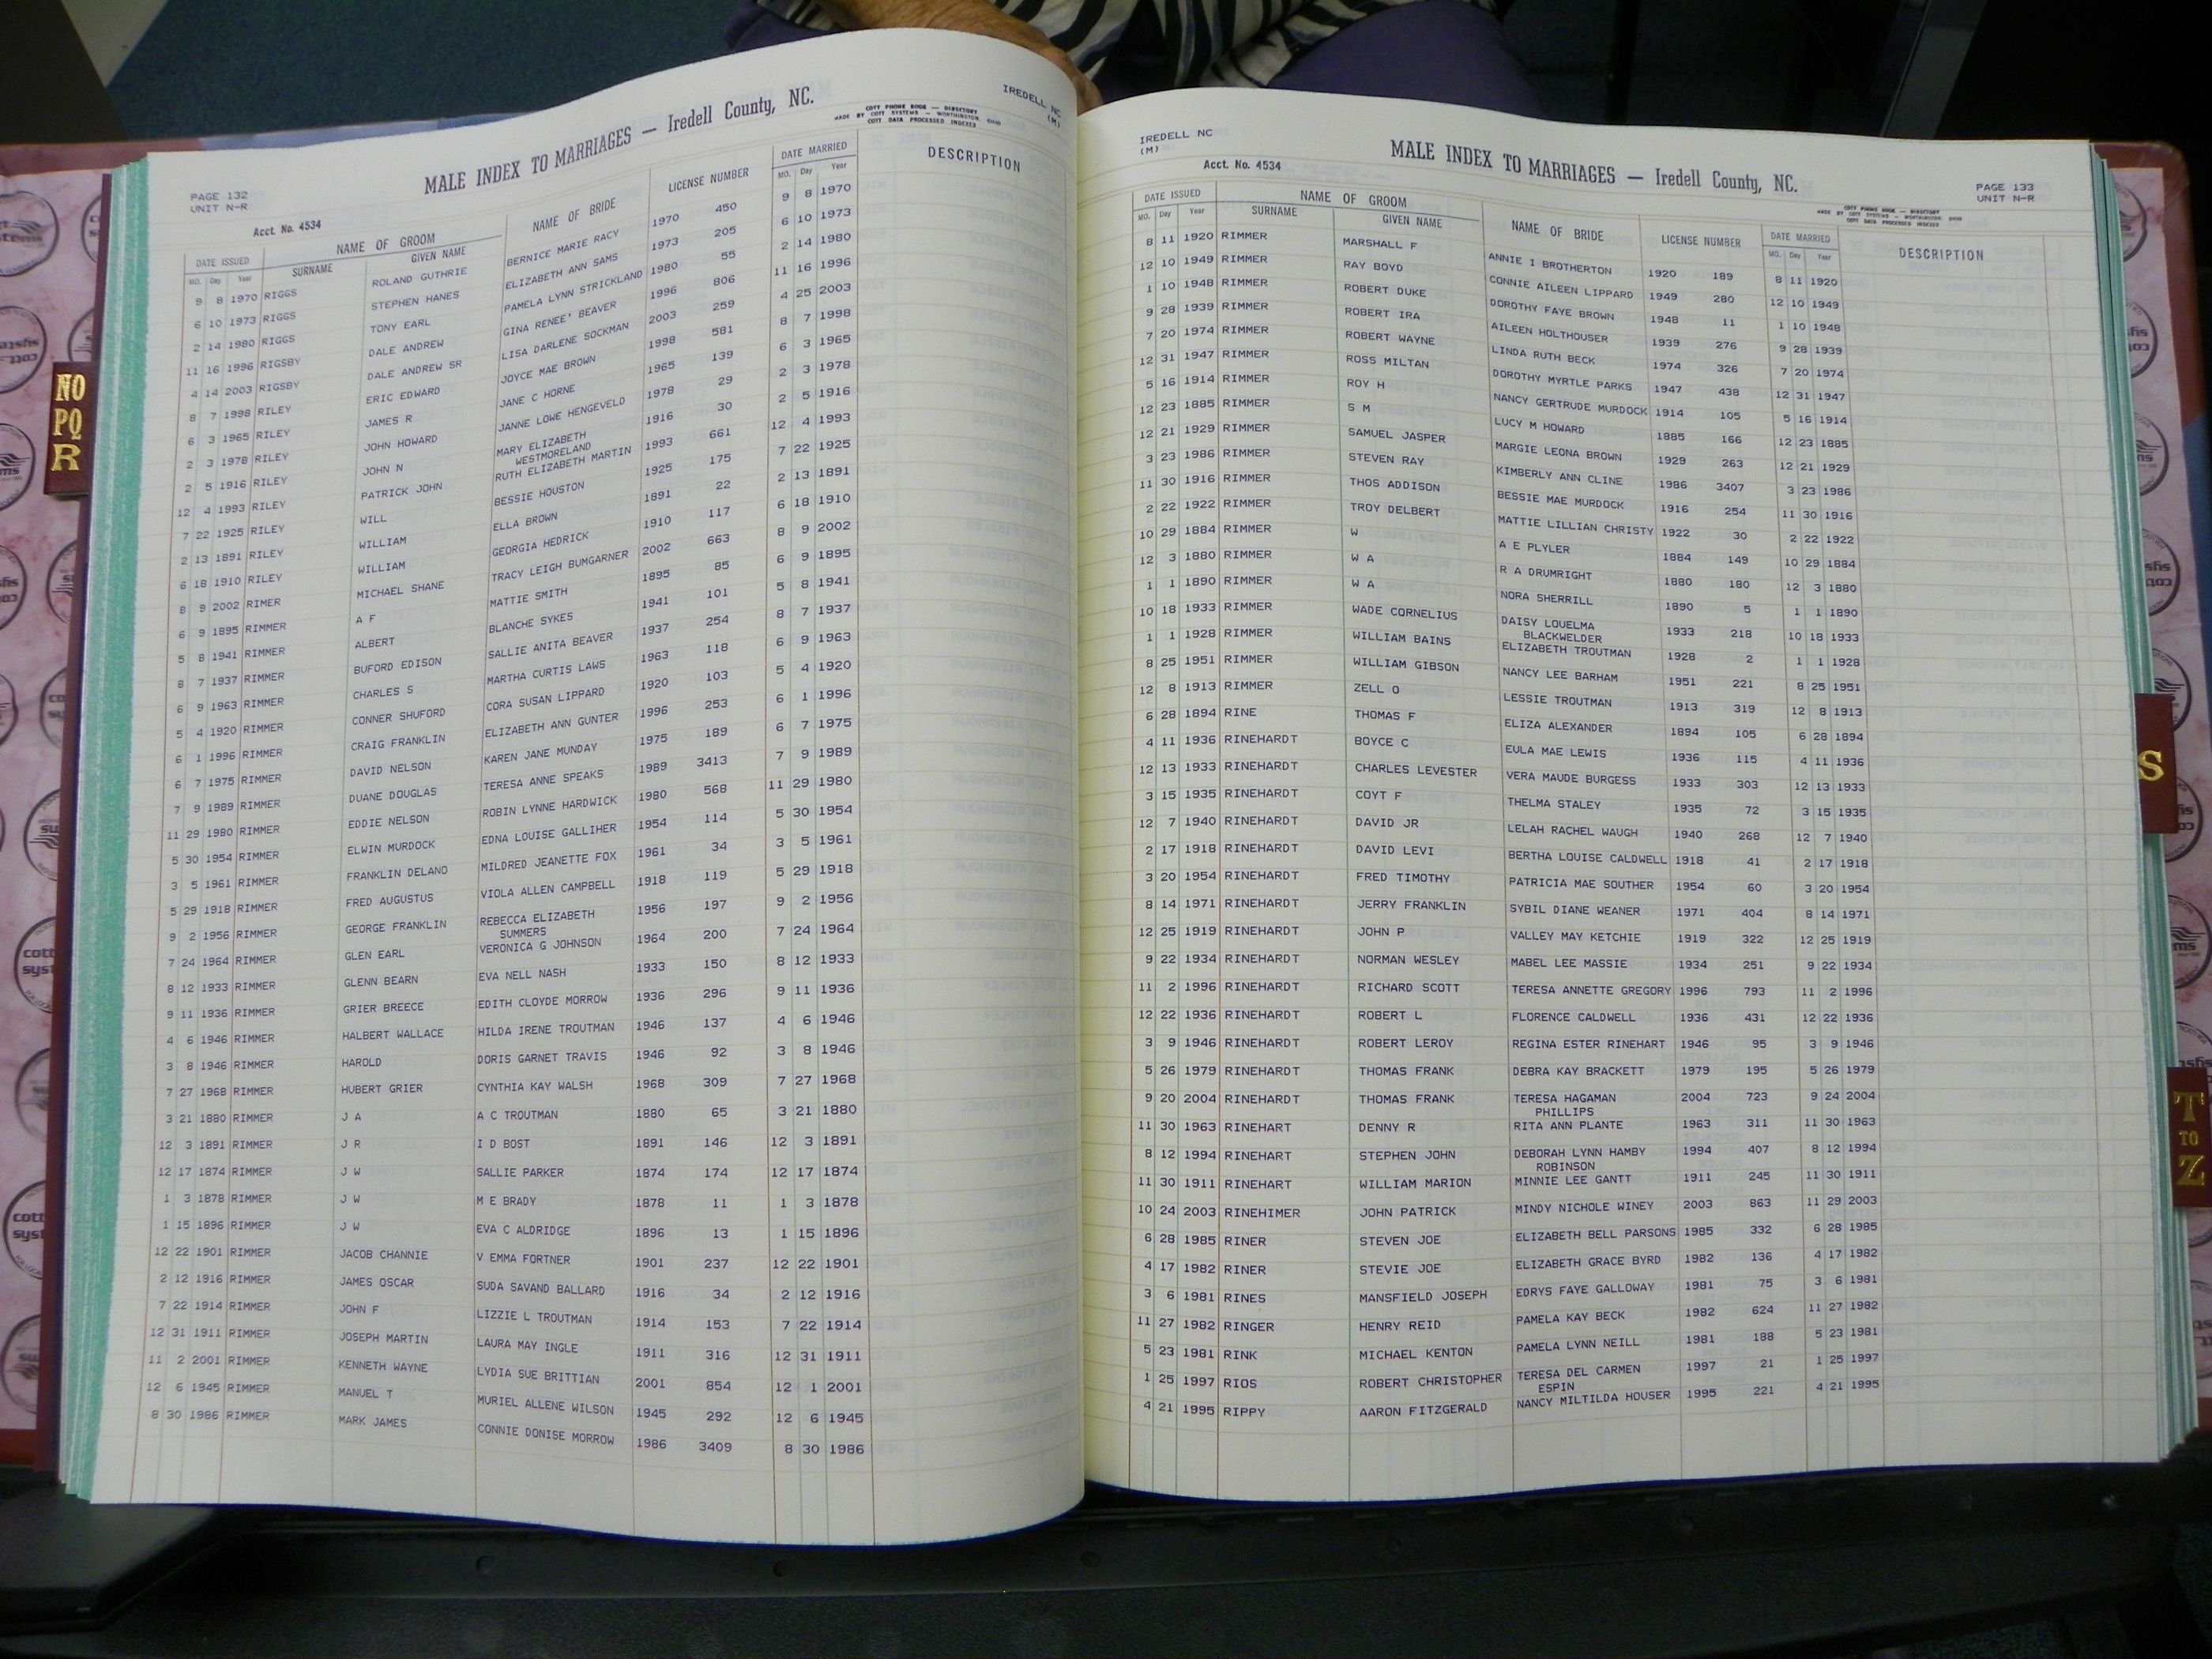 IREDELL NC
(M)
MALE INDEX TO MARRIAGES — Iredell County, NC.
COTT PHONE BOOK — DIRECTORY
MADE BY COTT SYSTEMS — WORTHINGTON OHIO
COTT DATA PROCESSED INDEXES
PAGE 132
UNIT N-R
Acct. No. 4534
DATE ISSUED NAME OF GROOM NAME OF BRIDE LICENSE NUMBER DATE MARRIED DESCRIPTION
MO. Day Year SURNAME GIVEN NAME MO. Day Year
9 8 1970 RIGGS ROLAND GUTHRIE BERNICE MARIE RACY 1970 450 9 8 1970
6 10 1973 RIGGS STEPHEN HANES ELIZABETH ANN SAMS 1973 205 6 10 1973
2 14 1980 RIGGS TONY EARL PAMELA LYNN STRICKLAND 1980 55 2 14 1980
11 16 1996 RIGSBY DALE ANDREW GINA RENEE' BEAVER 1996 806 11 16 1996
4 14 2003 RIGSBY DALE ANDREW SR LISA DARLENE SOCKMAN 2003 259 4 25 2003
8 7 1998 RILEY ERIC EDWARD JOYCE MAE BROWN 1998 581 8 7 1998
6 3 1965 RILEY JAMES R JANE C HORNE 1965 139 6 3 1965
2 3 1978 RILEY JOHN HOWARD JANNE LOWE HENGEVELD 1978 29 2 3 1978
2 5 1916 RILEY JOHN N MARY ELIZABETH 1916 30 2 5 1916
WESTMORELAND
12 4 1993 RILEY PATRICK JOHN RUTH ELIZABETH MARTIN 1993 661 12 4 1993
7 22 1925 RILEY WILL BESSIE HOUSTON 1925 175 7 22 1925
2 13 1891 RILEY WILLIAM ELLA BROWN 1891 22 2 13 1891
6 18 1910 RILEY WILLIAM GEORGIA HEDRICK 1910 117 6 18 1910
8 9 2002 RIMER MICHAEL SHANE TRACY LEIGH BUMGARNER 2002 663 8 9 2002
6 9 1895 RIMMER A F MATTIE SMITH 1895 85 6 9 1895
5 8 1941 RIMMER ALBERT BLANCHE SYKES 1941 101 5 8 1941
8 7 1937 RIMMER BUFORD EDISON SALLIE ANITA BEAVER 1937 254 8 7 1937
6 9 1963 RIMMER CHARLES S MARTHA CURTIS LAWS 1963 118 6 9 1963
5 4 1920 RIMMER CONNER SHUFORD CORA SUSAN LIPPARD 1920 103 5 4 1920
6 1 1996 RIMMER CRAIG FRANKLIN ELIZABETH ANN GUNTER 1996 253 6 1 1996
6 7 1975 RIMMER DAVID NELSON KAREN JANE MUNDAY 1975 189 6 7 1975
7 9 1989 RIMMER DUANE DOUGLAS TERESA ANNE SPEAKS 1989 3413 7 9 1989
11 29 1980 RIMMER EDDIE NELSON ROBIN LYNNE HARDWICK 1980 568 11 29 1980
5 30 1954 RIMMER ELWIN MURDOCK EDNA LOUISE GALLIHER 1954 114 5 30 1954
3 5 1961 RIMMER FRANKLIN DELANO MILDRED JEANETTE FOX 1961 34 3 5 1961
5 29 1918 RIMMER FRED AUGUSTUS VIOLA ALLEN CAMPBELL 1918 119 5 29 1918
9 2 1956 RIMMER GEORGE FRANKLIN REBECCA ELIZABETH 1956 197 9 2 1956
SUMMERS
7 24 1964 RIMMER GLEN EARL VERONICA G JOHNSON 1964 200 7 24 1964
8 12 1933 RIMMER GLENN BEARN EVA NELL NASH 1933 150 8 12 1933
9 11 1936 RIMMER GRIER BREECE EDITH CLOYDE MORROW 1936 296 9 11 1936
4 6 1946 RIMMER HALBERT WALLACE HILDA IRENE TROUTMAN 1946 137 4 6 1946
3 8 1946 RIMMER HAROLD DORIS GARNET TRAVIS 1946 92 3 8 1946
7 27 1968 RIMMER HUBERT GRIER CYNTHIA KAY WALSH 1968 309 7 27 1968
3 21 1880 RIMMER J A A C TROUTMAN 1880 65 3 21 1880
12 3 1891 RIMMER J R I D BOST 1891 146 12 3 1891
12 17 1874 RIMMER J W SALLIE PARKER 1874 174 12 17 1874
1 3 1878 RIMMER J W M E BRADY 1878 11 1 3 1878
1 15 1896 RIMMER J W EVA C ALDRIDGE 1896 13 1 15 1896
12 22 1901 RIMMER JACOB CHANNIE V EMMA FORTNER 1901 237 12 22 1901
2 12 1916 RIMMER JAMES OSCAR SUDA SAVAND BALLARD 1916 34 2 12 1916
7 22 1914 RIMMER JOHN F LIZZIE L TROUTMAN 1914 153 7 22 1914
12 31 1911 RIMMER JOSEPH MARTIN LAURA MAY INGLE 1911 316 12 31 1911
11 2 2001 RIMMER KENNETH WAYNE LYDIA SUE BRITTIAN 2001 854 12 1 2001
12 6 1945 RIMMER MANUEL T MURIEL ALLENE WILSON 1945 292 12 6 1945
8 30 1986 RIMMER MARK JAMES CONNIE DONISE MORROW 1986 3409 8 30 1986
IREDELL NC
(M)
Acct. No. 4534
MALE INDEX TO MARRIAGES — Iredell County, NC.
COTT PHONE BOOK — DIRECTORY
MADE BY COTT SYSTEMS — WORTHINGTON OHIO
COTT DATA PROCESSED INDEXES
PAGE 133
UNIT N-R
DATE ISSUED NAME OF GROOM NAME OF BRIDE LICENSE NUMBER DATE MARRIED DESCRIPTION
MO. Day Year SURNAME GIVEN NAME MO. Day Year
8 11 1920 RIMMER MARSHALL F ANNIE I BROTHERTON 1920 189 8 11 1920
12 10 1949 RIMMER RAY BOYD CONNIE AILEEN LIPPARD 1949 280 12 10 1949
1 10 1948 RIMMER ROBERT DUKE DOROTHY FAYE BROWN 1948 11 1 10 1948
9 28 1939 RIMMER ROBERT IRA AILEEN HOLTHOUSER 1939 276 9 28 1939
7 20 1974 RIMMER ROBERT WAYNE LINDA RUTH BECK 1974 326 7 20 1974
12 31 1947 RIMMER ROSS MILTAN DOROTHY MYRTLE PARKS 1947 438 12 31 1947
5 16 1914 RIMMER ROY H NANCY GERTRUDE MURDOCK 1914 105 5 16 1914
12 23 1885 RIMMER S M LUCY M HOWARD 1885 166 12 23 1885
12 21 1929 RIMMER SAMUEL JASPER MARGIE LEONA BROWN 1929 263 12 21 1929
3 23 1986 RIMMER STEVEN RAY KIMBERLY ANN CLINE 1986 3407 3 23 1986
11 30 1916 RIMMER THOS ADDISON BESSIE MAE MURDOCK 1916 254 11 30 1916
2 22 1922 RIMMER TROY DELBERT MATTIE LILLIAN CHRISTY 1922 30 2 22 1922
10 29 1884 RIMMER W A E PLYLER 1884 149 10 29 1884
12 3 1880 RIMMER W A R A DRUMRIGHT 1880 180 12 3 1880
1 1 1890 RIMMER W A NORA SHERRILL 1890 5 1 1 1890
10 18 1933 RIMMER WADE CORNELIUS DAISY LOUELMA 1933 218 10 18 1933
BLACKWELDER
1 1 1928 RIMMER WILLIAM BAINS ELIZABETH TROUTMAN 1928 2 1 1 1928
8 25 1951 RIMMER WILLIAM GIBSON NANCY LEE BARHAM 1951 221 8 25 1951
12 8 1913 RIMMER ZELL O LESSIE TROUTMAN 1913 319 12 8 1913
6 28 1894 RINE THOMAS F ELIZA ALEXANDER 1894 105 6 28 1894
4 11 1936 RINEHARDT BOYCE C EULA MAE LEWIS 1936 115 4 11 1936
12 13 1933 RINEHARDT CHARLES LEVESTER VERA MAUDE BURGESS 1933 303 12 13 1933
3 15 1935 RINEHARDT COYT F THELMA STALEY 1935 72 3 15 1935
12 7 1940 RINEHARDT DAVID JR LELAH RACHEL WAUGH 1940 268 12 7 1940
2 17 1918 RINEHARDT DAVID LEVI BERTHA LOUISE CALDWELL 1918 41 2 17 1918
3 20 1954 RINEHARDT FRED TIMOTHY PATRICIA MAE SOUTHER 1954 60 3 20 1954
8 14 1971 RINEHARDT JERRY FRANKLIN SYBIL DIANE WEANER 1971 404 8 14 1971
12 25 1919 RINEHARDT JOHN P VALLEY MAY KETCHIE 1919 322 12 25 1919
9 22 1934 RINEHARDT NORMAN WESLEY MABEL LEE MASSIE 1934 251 9 22 1934
11 2 1996 RINEHARDT RICHARD SCOTT TERESA ANNETTE GREGORY 1996 793 11 2 1996
12 22 1936 RINEHARDT ROBERT L FLORENCE CALDWELL 1936 431 12 22 1936
3 9 1946 RINEHARDT ROBERT LEROY REGINA ESTER RINEHART 1946 95 3 9 1946
5 26 1979 RINEHARDT THOMAS FRANK DEBRA KAY BRACKETT 1979 195 5 26 1979
9 20 2004 RINEHARDT THOMAS FRANK TERESA HAGAMAN 2004 723 9 24 2004
PHILLIPS
11 30 1963 RINEHART DENNY R RITA ANN PLANTE 1963 311 11 30 1963
8 12 1994 RINEHART STEPHEN JOHN DEBORAH LYNN HAMBY 1994 407 8 12 1994
ROBINSON
11 30 1911 RINEHART WILLIAM MARION MINNIE LEE GANTT 1911 245 11 30 1911
10 24 2003 RINEHIMER JOHN PATRICK MINDY NICHOLE WINEY 2003 863 11 29 2003
6 28 1985 RINER STEVEN JOE ELIZABETH BELL PARSONS 1985 332 6 28 1985
4 17 1982 RINER STEVIE JOE ELIZABETH GRACE BYRD 1982 136 4 17 1982
3 6 1981 RINES MANSFIELD JOSEPH EDRYS FAYE GALLOWAY 1981 75 3 6 1981
11 27 1982 RINGER HENRY REID PAMELA KAY BECK 1982 624 11 27 1982
5 23 1981 RINK MICHAEL KENTON PAMELA LYNN NEILL 1981 188 5 23 1981
1 25 1997 RIOS ROBERT CHRISTOPHER TERESA DEL CARMEN 1997 21 1 25 1997
ESPIN
4 21 1995 RIPPY AARON FITZGERALD NANCY MILTILDA HOUSER 1995 221 4 21 1995
NO
PQ
R
S
T
TO
Z